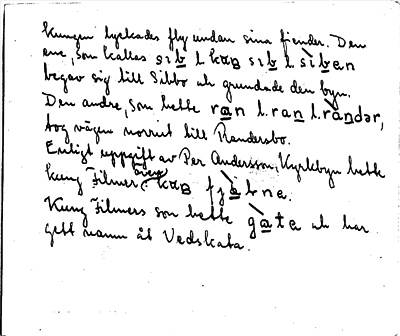 Kungen lyckades fly undan sina fiender. Den
ene, som kallas sib l. sib l. siben
begav sig till Sibbo och grundade den byn.
Den andre, som hette ran l. ran l. randər,
tog vägen norrut till Randersbo.
Enligt uppgift av Per Andersson, Kyrkbyn hette
kung Filmer även fjälne.
Kung Filmers son hette gata och har
gett namn åt Vedskata.